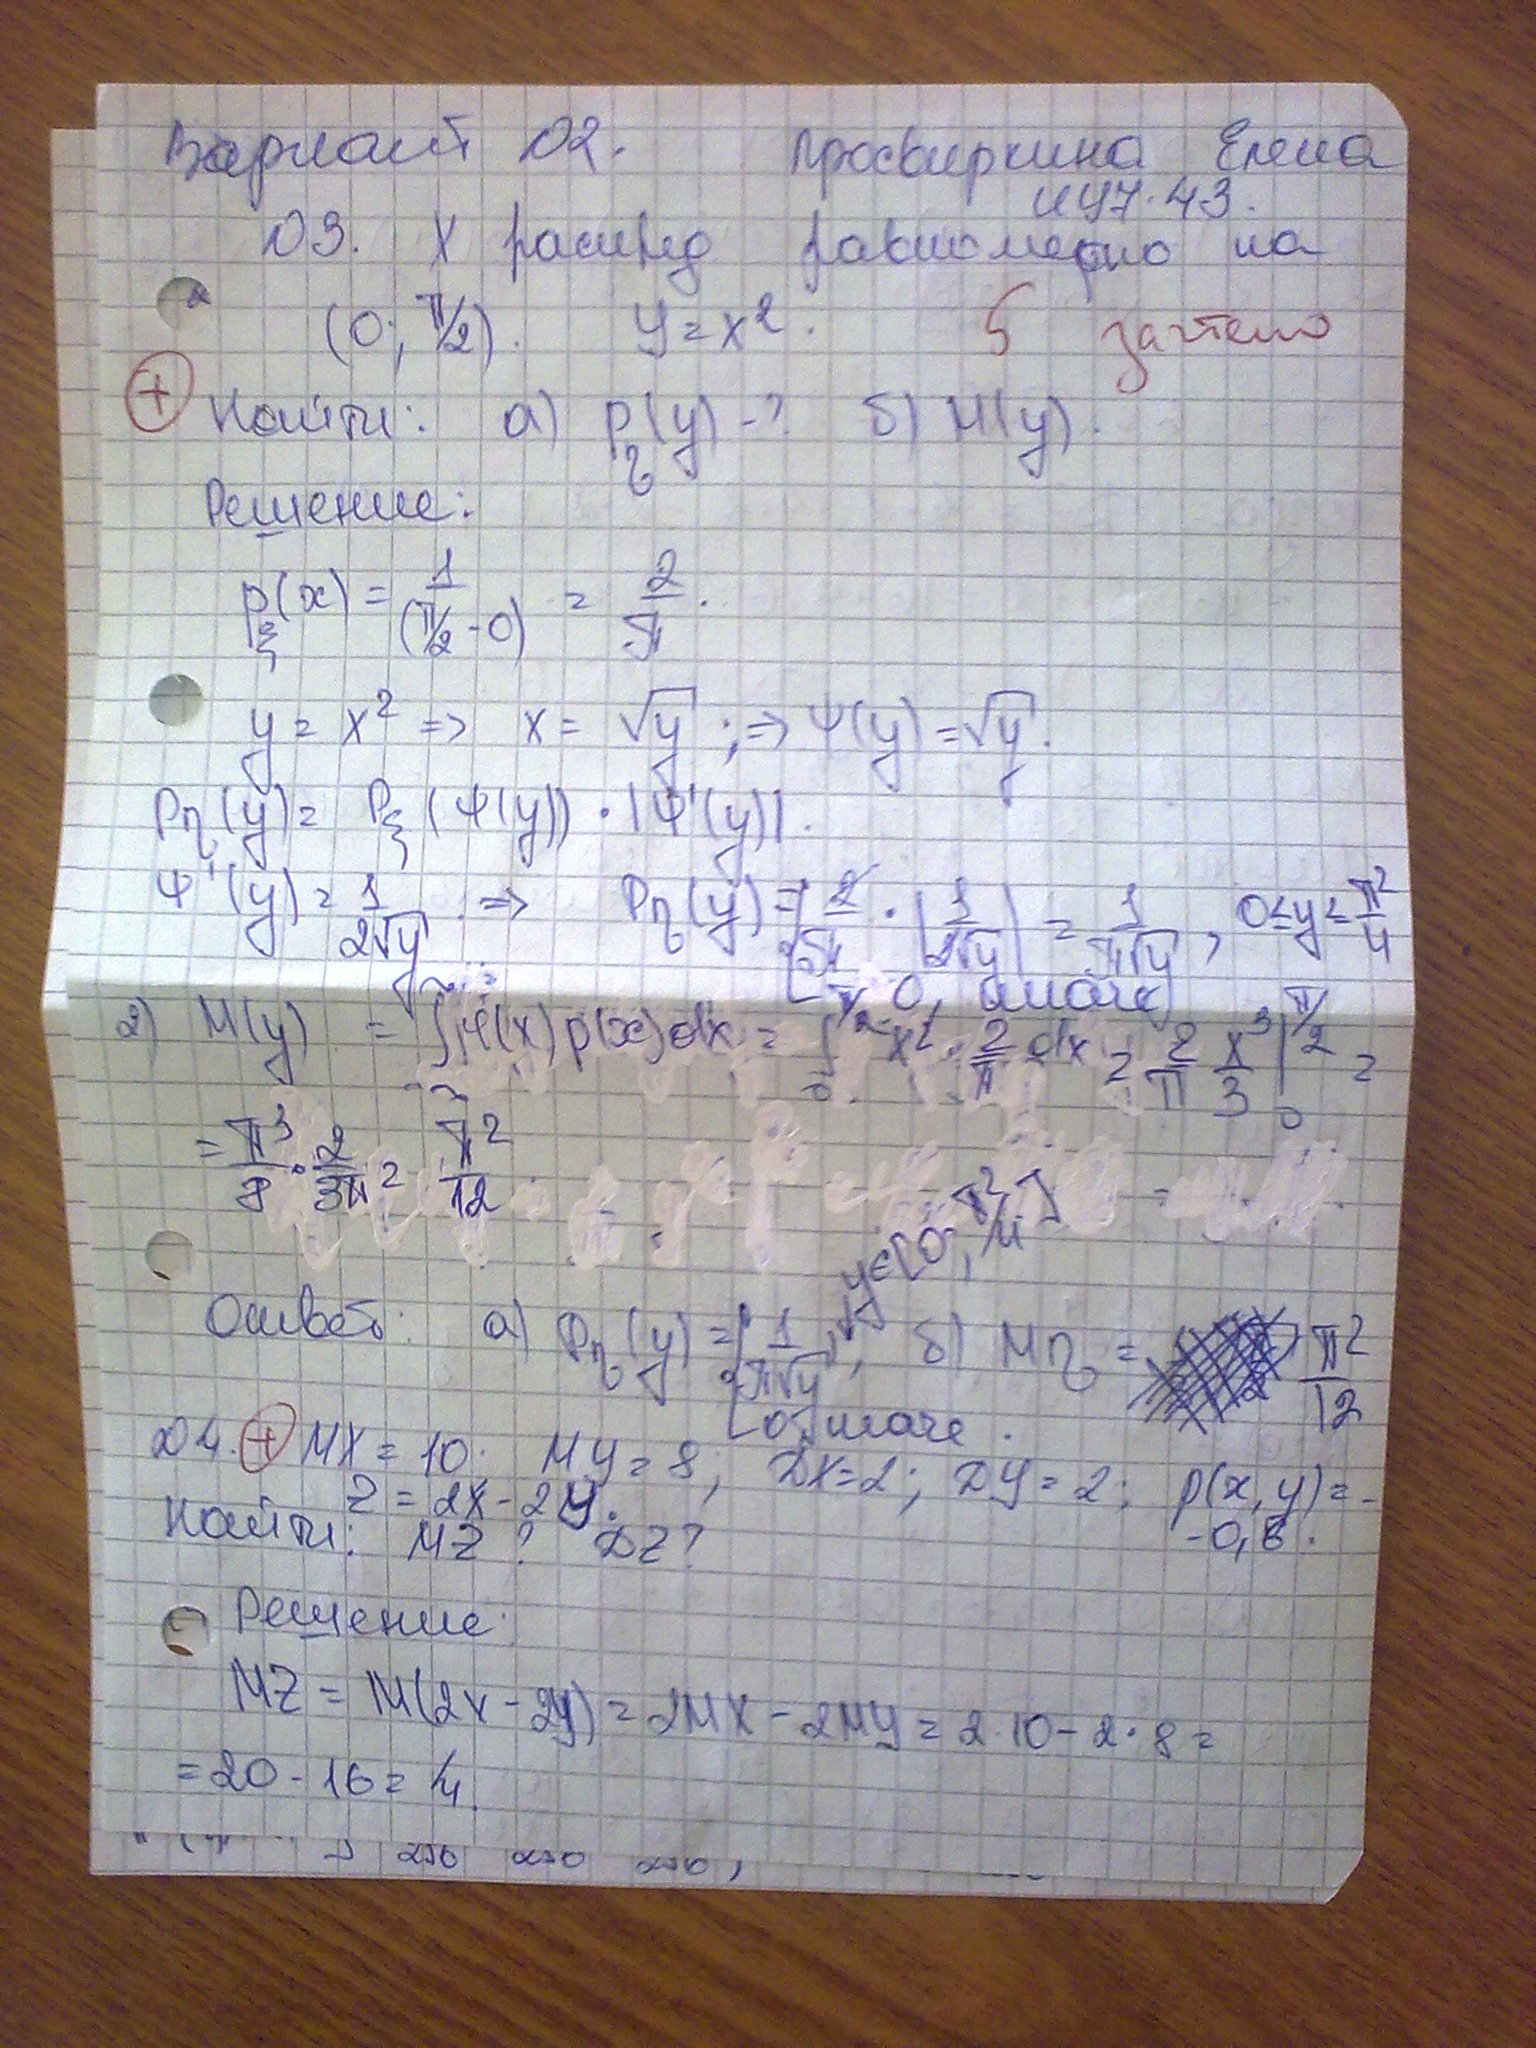 Вариант №2. Просвиркина Елена
ИУ7-43.
№3. X распред равномерно на
(0; π/2). y = x². 5 зачтено
+ Найти: а) pη(y) -? б) M(y).
Решение:
pξ(x) = 1/(π/2 - 0) = 2/π.
y = x² => x = √y; => Ψ(y) = √y.
pη(y) = pξ(Ψ(y)) · |Ψ'(y)|.
Ψ'(y) = 1/2√y => pη(y) = { 2/π · |1/2√y| = 1/π√y, 0≤y≤π²/4
0, иначе
2) M(y) = ∫Ψ(x)p(x)dx = ∫ x² · 2/π dx = 2/π x³/3 |₀^π/2 =
= π³/8 · 2/3π = π²/12
Ответ: а) pη(y) = { 1/π√y, y∈[0; π²/4] ; б) Mη = π²/12
0, иначе.
№4. + MX = 10; MY = 8; DX = 2; DY = 2; p(x,y) = -
Z = 2X - 2Y. -0,
Найти: MZ? DZ?
Решение:
MZ = M(2X - 2Y) = 2MX - 2MY = 2·10 - 2·8 =
= 20 - 16 = 4.